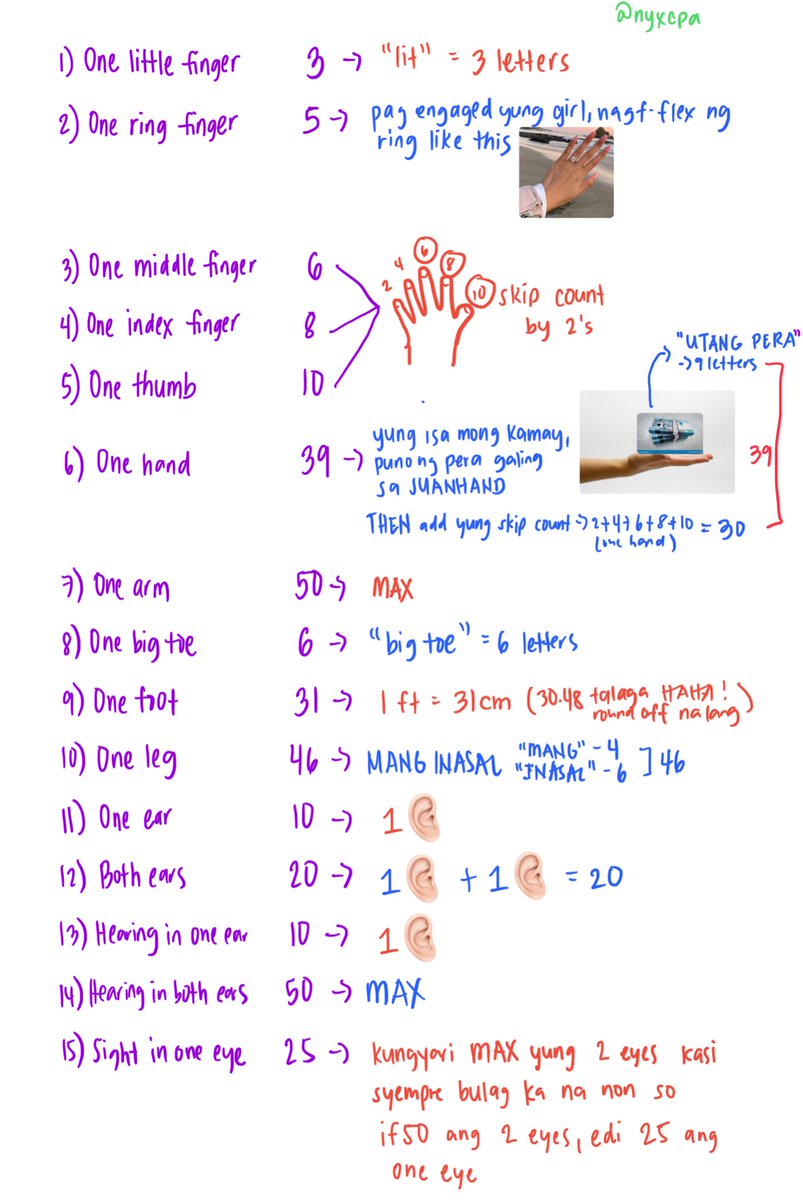 @nyxcpa
1) One little finger 3 → "lit" = 3 letters
2) One ring finger 5 → pag engaged yung girl, nagf-flex ng
ring like this
3) One middle finger 6
4) One index finger 8
5) One thumb 10
2 4 6 8 10 skip count
by 2's
"UTANG PERA"
→ 9 letters
6) One hand 39 → yung isa mong kamay,
puno ng pera galing
sa JUANHAND
39
THEN add yung skip count → 2+4+6+8+10 = 30
(one hand)
7) One arm 50 → MAX
8) One big toe 6 → "big toe" = 6 letters
9) One foot 31 → 1 ft = 31 cm (30.48 talaga HAHA!
round off na lang)
10) One leg 46 → MANG INASAL "MANG" - 4
"INASAL" - 6 ] 46
11) One ear 10 → 1
12) Both ears 20 → 1 + 1 = 20
13) Hearing in one ear 10 → 1
14) Hearing in both ears 50 → MAX
15) Sight in one eye 25 → kungyari MAX yung 2 eyes kasi
syempre bulag ka na non so
if 50 ang 2 eyes, edi 25 ang
one eye